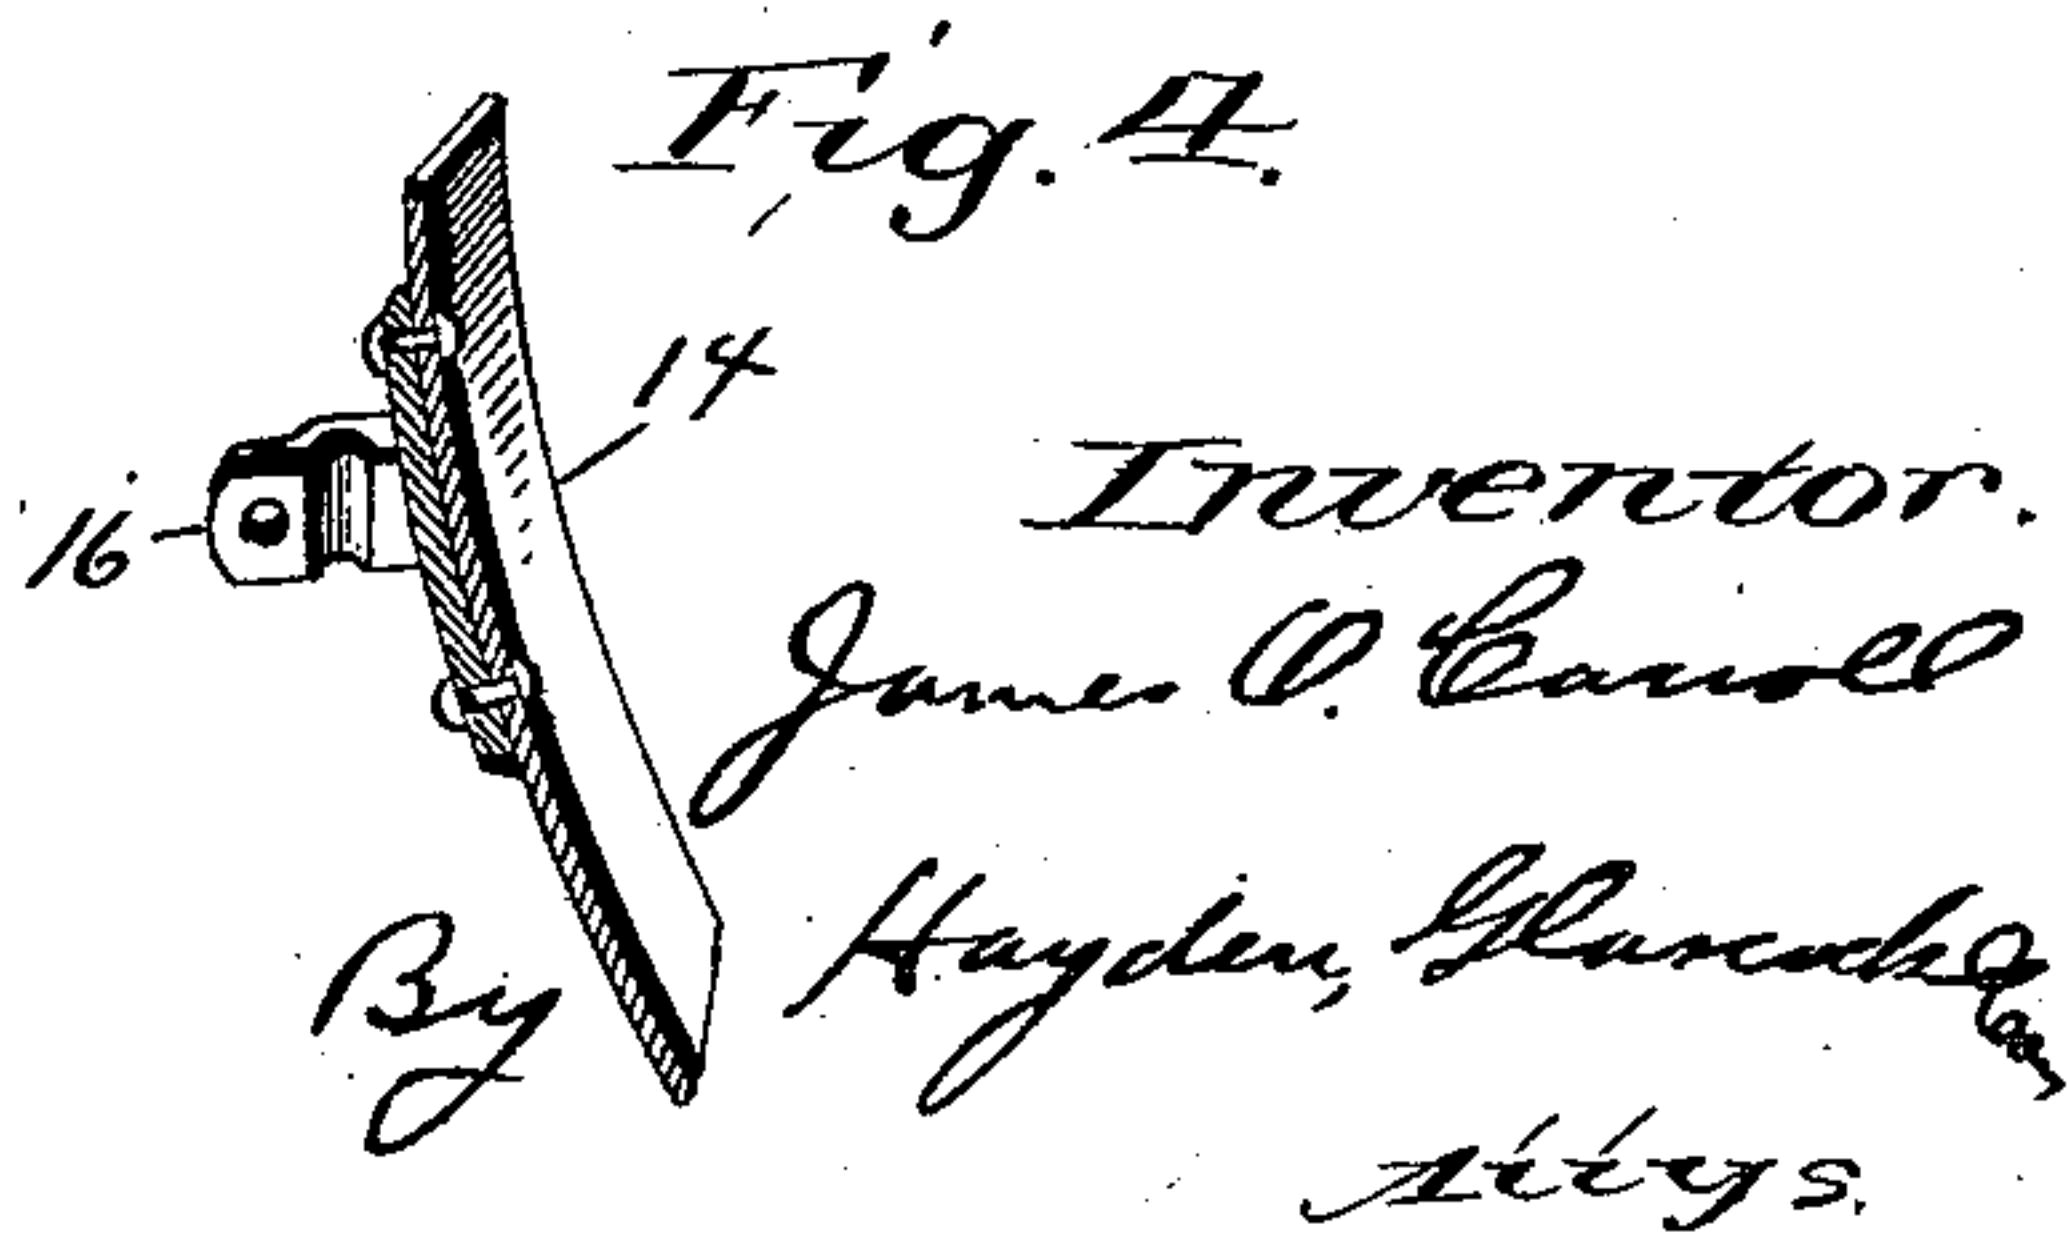 Fig. 4.
14
16
Inventor.
James O. Carroll
By Hayden, Glascock &
Attys.